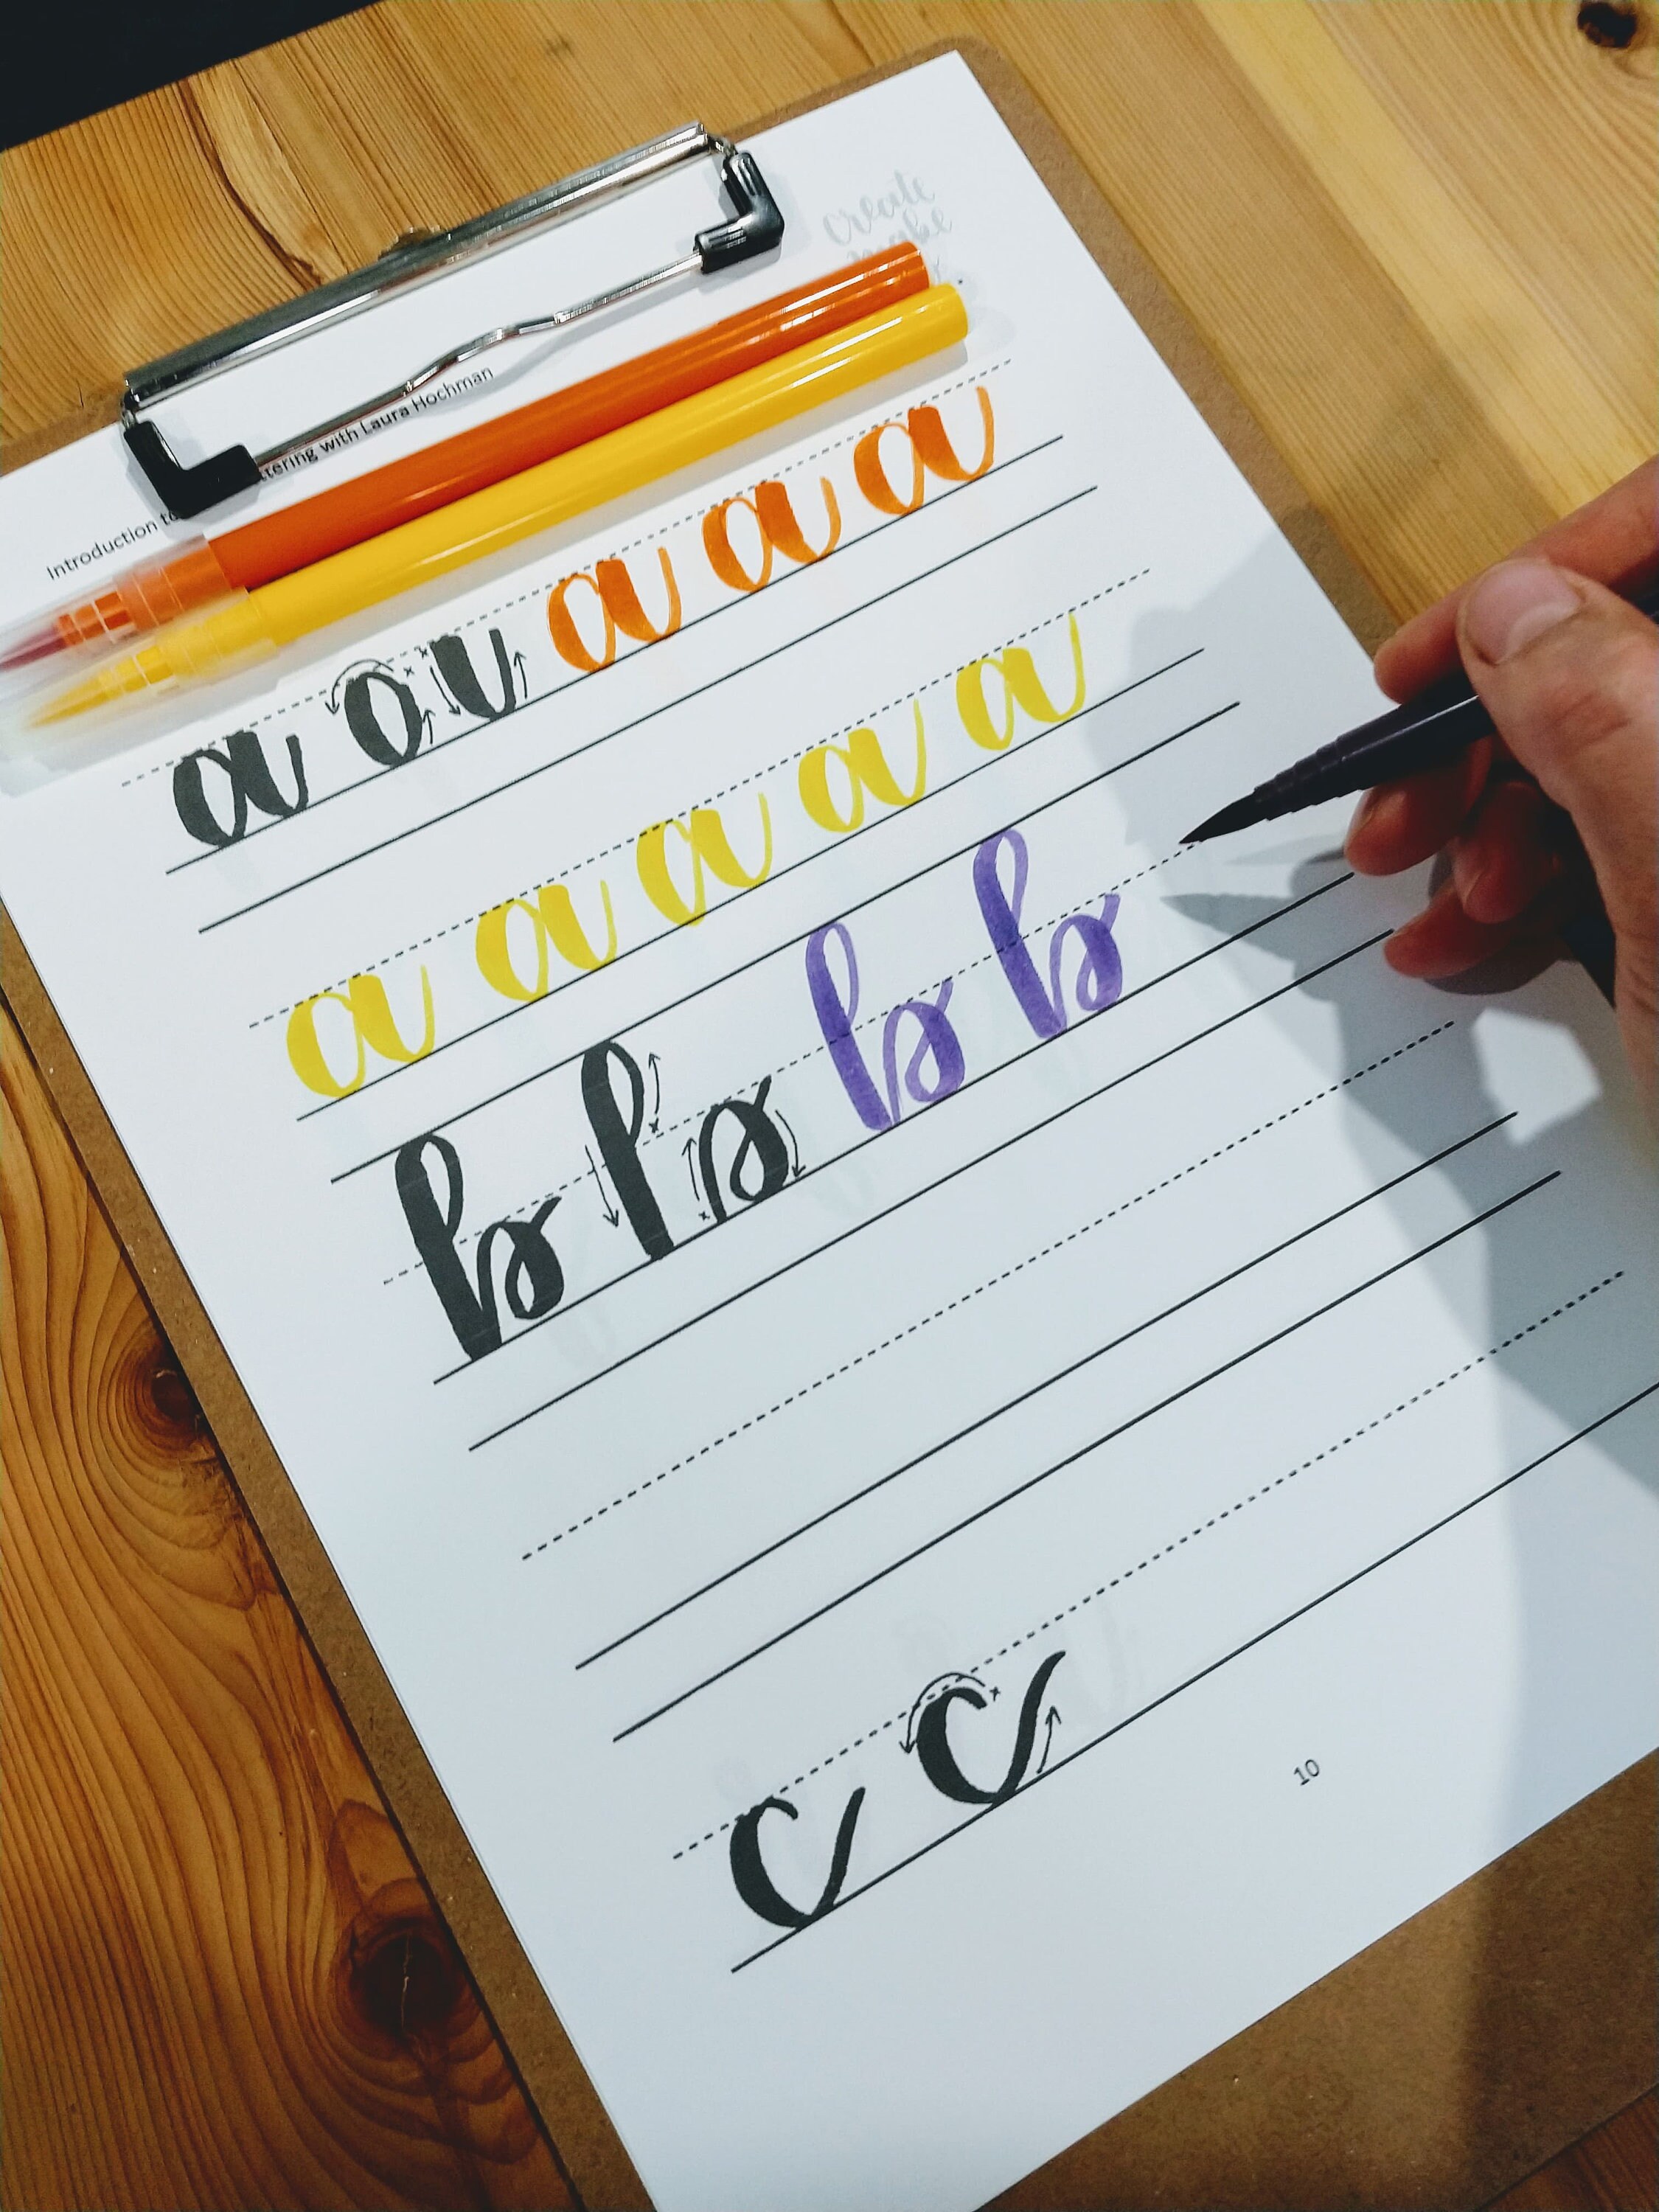 create
make
Introduction to with Laura Hochman
a a a a a
a a a a a
b b b b
c c
10